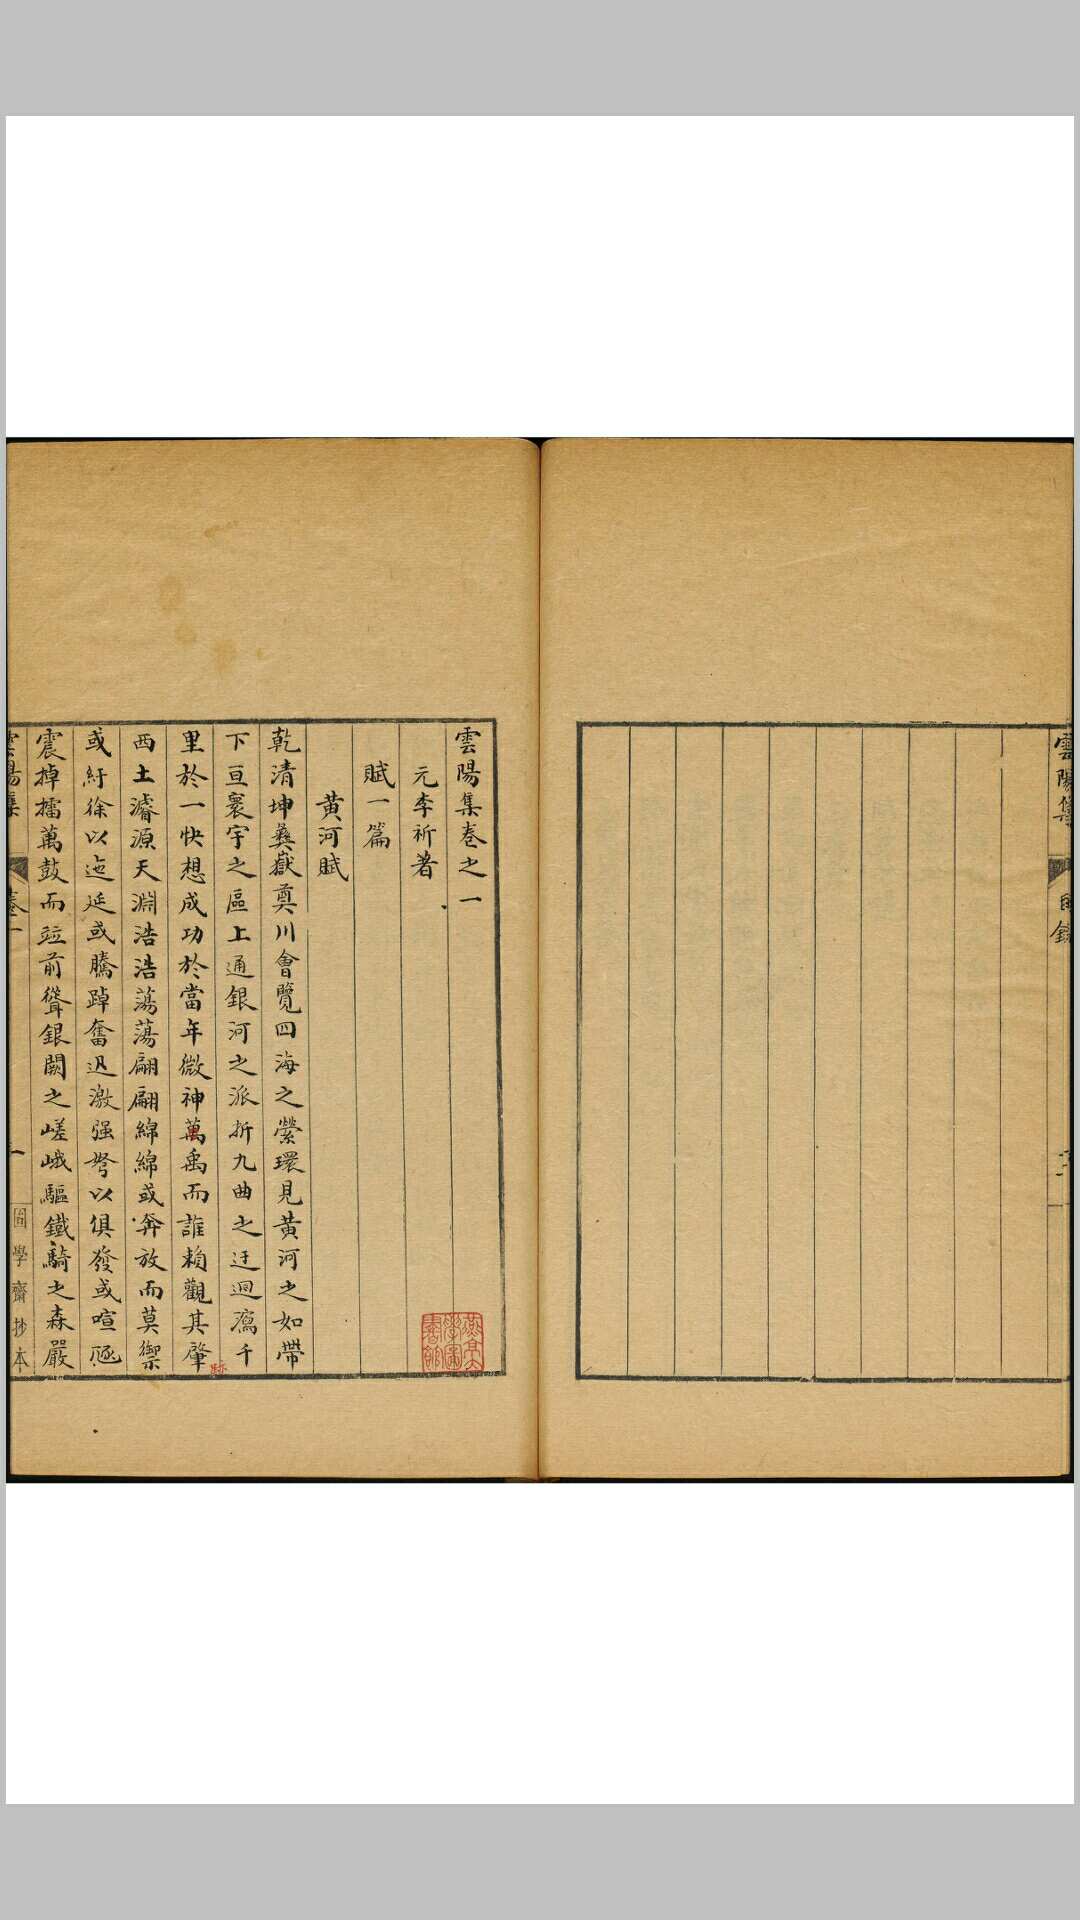 雲陽集
目錄
雲陽集卷之一
元李祈著
賦一篇
黃河賦
乾清坤彝嶽奠川會覽四海之縈環見黃河之如帶
下亘寰宇之區上通銀河之派折九曲之迂迴瀉千
里於一快想成功於當年微神萬禹而誰賴觀其肇
跡
西土濬源天淵浩浩蕩蕩翩翩綿綿或奔放而莫禦
或紆徐以迤延或騰踔奮迅激强弩以俱發或喧豗
震掉擂萬鼓而竝前聳銀闕之嵯峨驅鐵騎之森嚴
雲陽集
卷一
一
學齋抄本
燕京大學圖書館